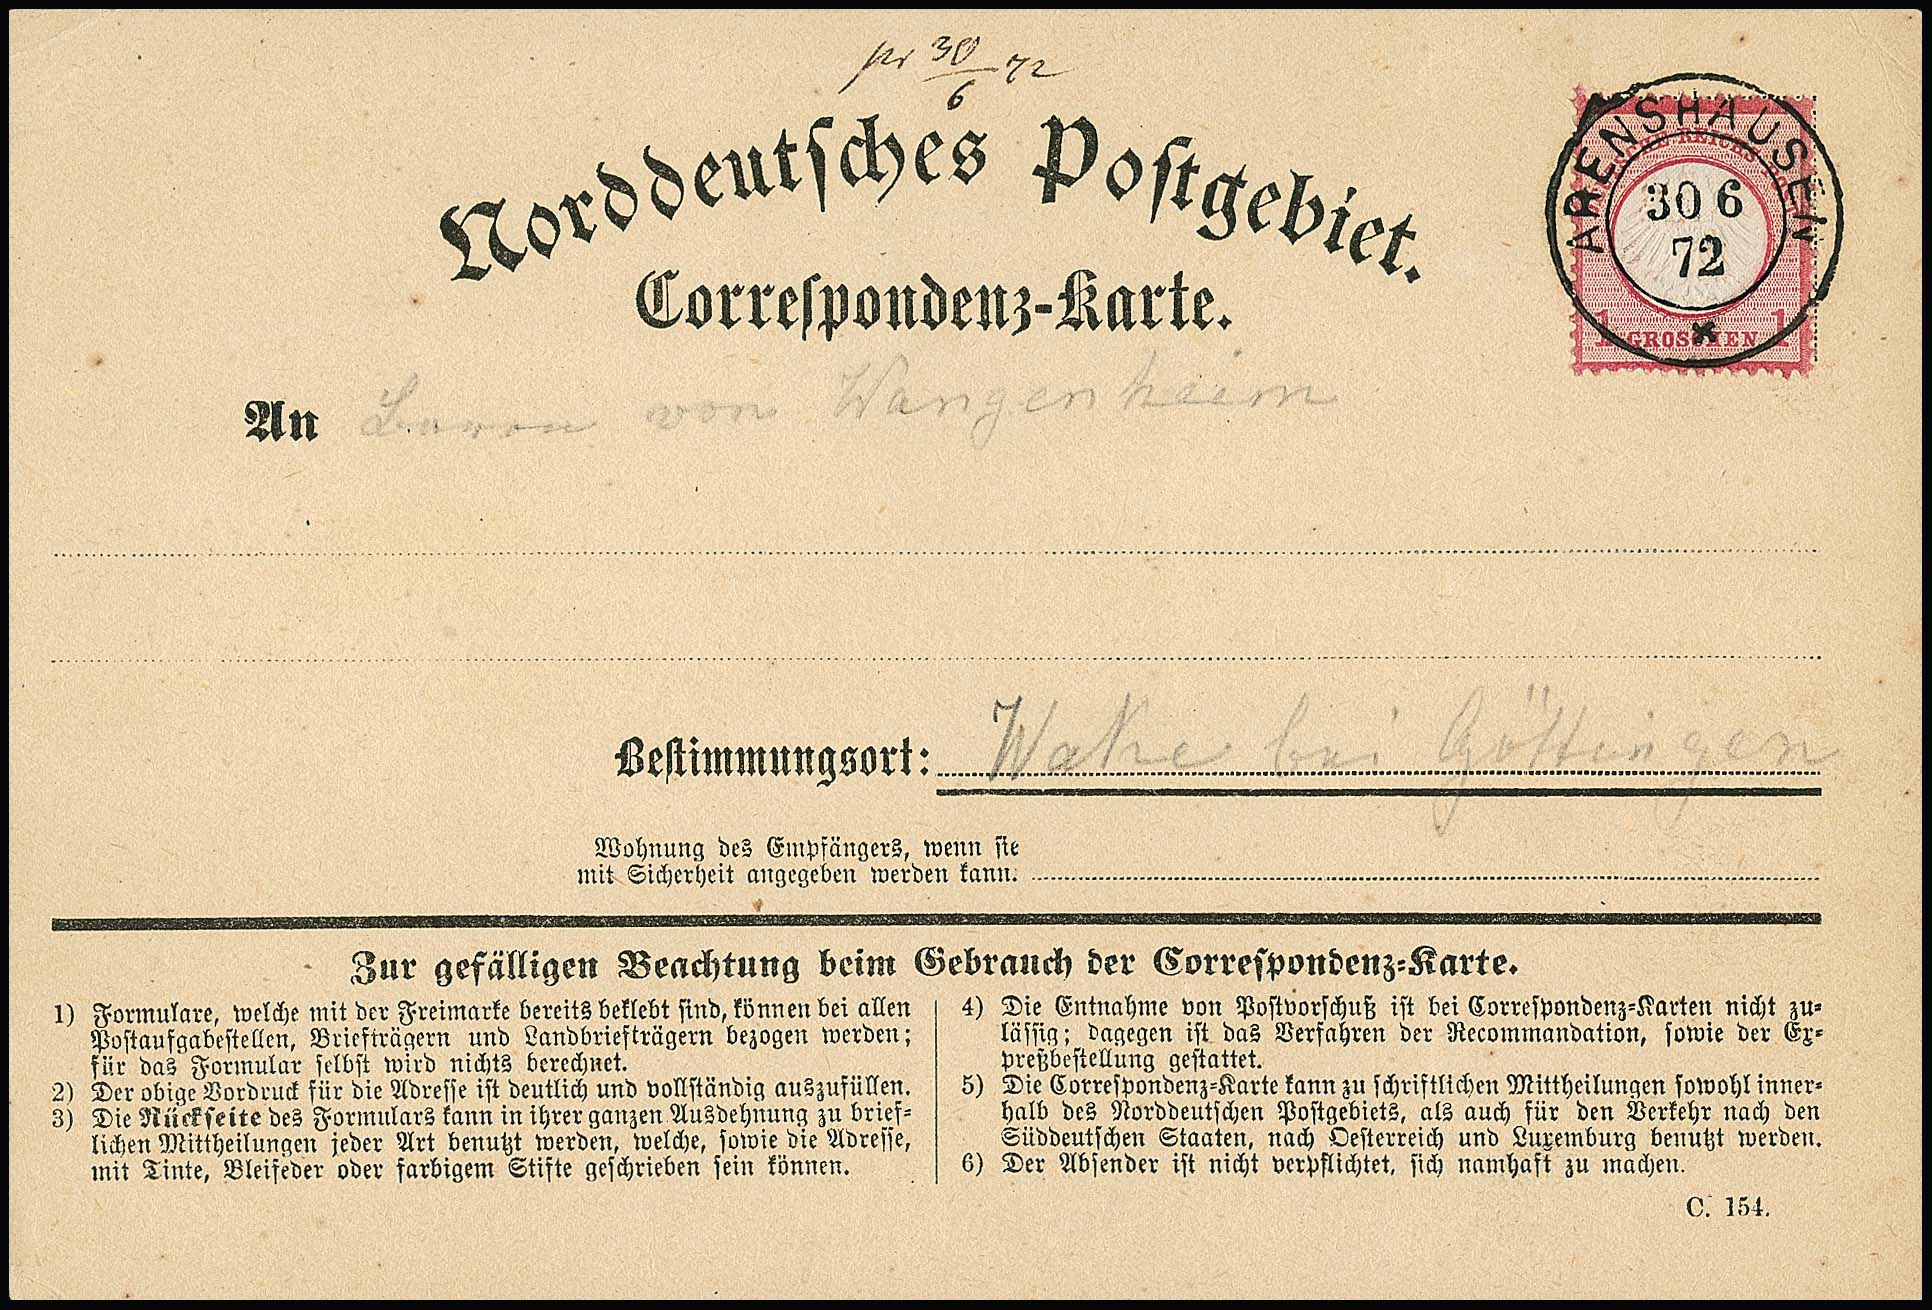 pr 30/6 72
Norddeutsches Postgebiet.
Correspondenz-Karte.
ARENSHAUSEN
30 6
72
1 GROSCHEN 1
An Baron von Wangenheim
Bestimmungsort: Wake bei Göttingen
Wohnung des Empfängers, wenn sie
mit Sicherheit angegeben werden kann.
Zur gefälligen Beachtung beim Gebrauch der Correspondenz-Karte.
1) Formulare, welche mit der Freimarke bereits beklebt sind, können bei allen
Postaufgabestellen, Briefträgern und Landbriefträgern bezogen werden;
für das Formular selbst wird nichts berechnet.
2) Der obige Vordruck für die Adresse ist deutlich und vollständig auszufüllen.
3) Die Rückseite des Formulars kann in ihrer ganzen Ausdehnung zu brief-
lichen Mittheilungen jeder Art benutzt werden, welche, sowie die Adresse,
mit Tinte, Bleifeder oder farbigem Stifte geschrieben sein können.
4) Die Entnahme von Postvorschuß ist bei Correspondenz-Karten nicht zu-
lässig; dagegen ist das Verfahren der Recommandation, sowie der Ex-
preßbestellung gestattet.
5) Die Correspondenz-Karte kann zu schriftlichen Mittheilungen sowohl inner-
halb des Norddeutschen Postgebiets, als auch für den Verkehr nach den
Süddeutschen Staaten, nach Oesterreich und Luxemburg benutzt werden.
6) Der Absender ist nicht verpflichtet, sich namhaft zu machen.
C. 154.